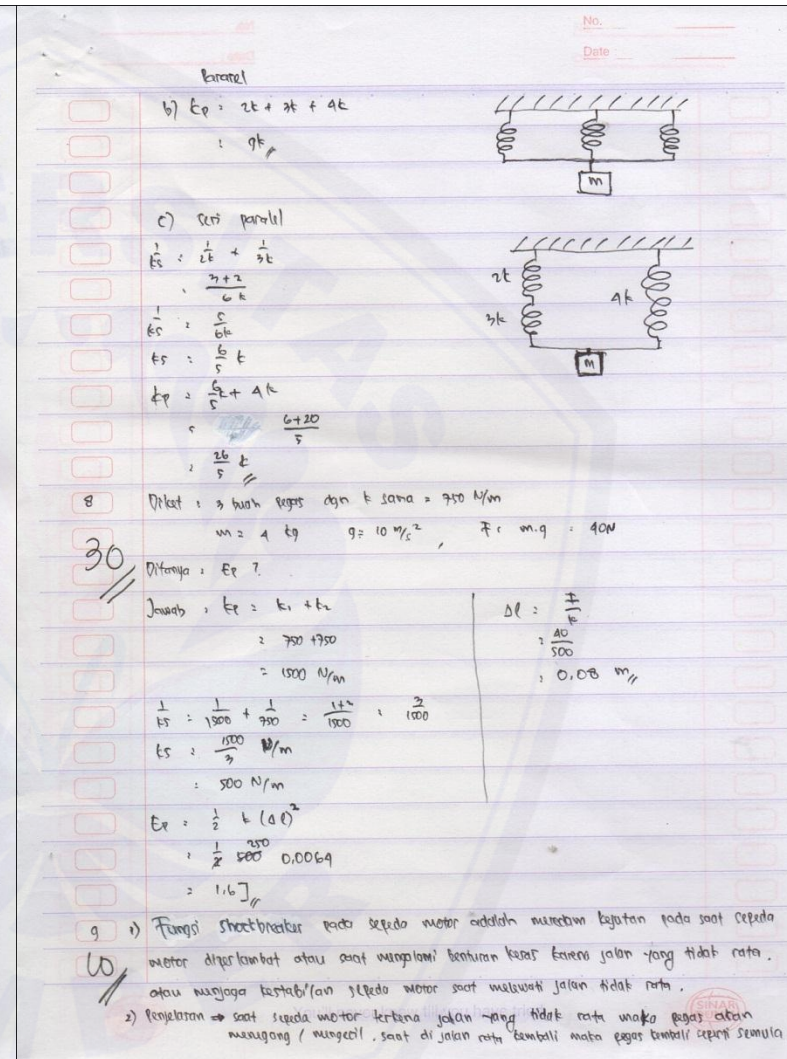 No.
Date
Pararel
b) kp : 2k + 3k + 4k
: 9k
m
c) seri paralel
1/ks : 1/2k + 1/3k
: 3+2/6k
1/ks : 5/6k
ks : 6/5 k
kp : 6/5 k + 4k
: 6+20/5
: 26/5 k
2k
3k
4k
m
8 Diket : 3 buah pegas dgn k sama = 750 N/m
m = 4 kg g = 10 m/s², F : m.g : 40N
30
Ditanya : Ep ?
Jawab : kp = k₁ + k₂
: 750 + 750
= 1500 N/m
1/ks : 1/1500 + 1/750 = 1+2/1500 : 3/1500
ks : 1500/3 N/m
: 500 N/m
Δl : F/k
: 40/500
: 0,08 m
Ep : 1/2 k (Δl)²
: 1/2 500 250 0,0064
: 1,6 J
9 1) Fungsi shockbreaker pada sepeda motor adalah meredam kejutan pada saat sepeda
10
motor diperlambat atau saat mengalami benturan keras karena jalan yang tidak rata.
atau menjaga kestabilan sepeda motor saat melewati jalan tidak rata.
2) Penjelasan → saat sepeda motor terkena jalan yang tidak rata maka pegas akan
meregang / mengecil, saat di jalan rata kembali maka pegas kembali seperti semula
SINAR